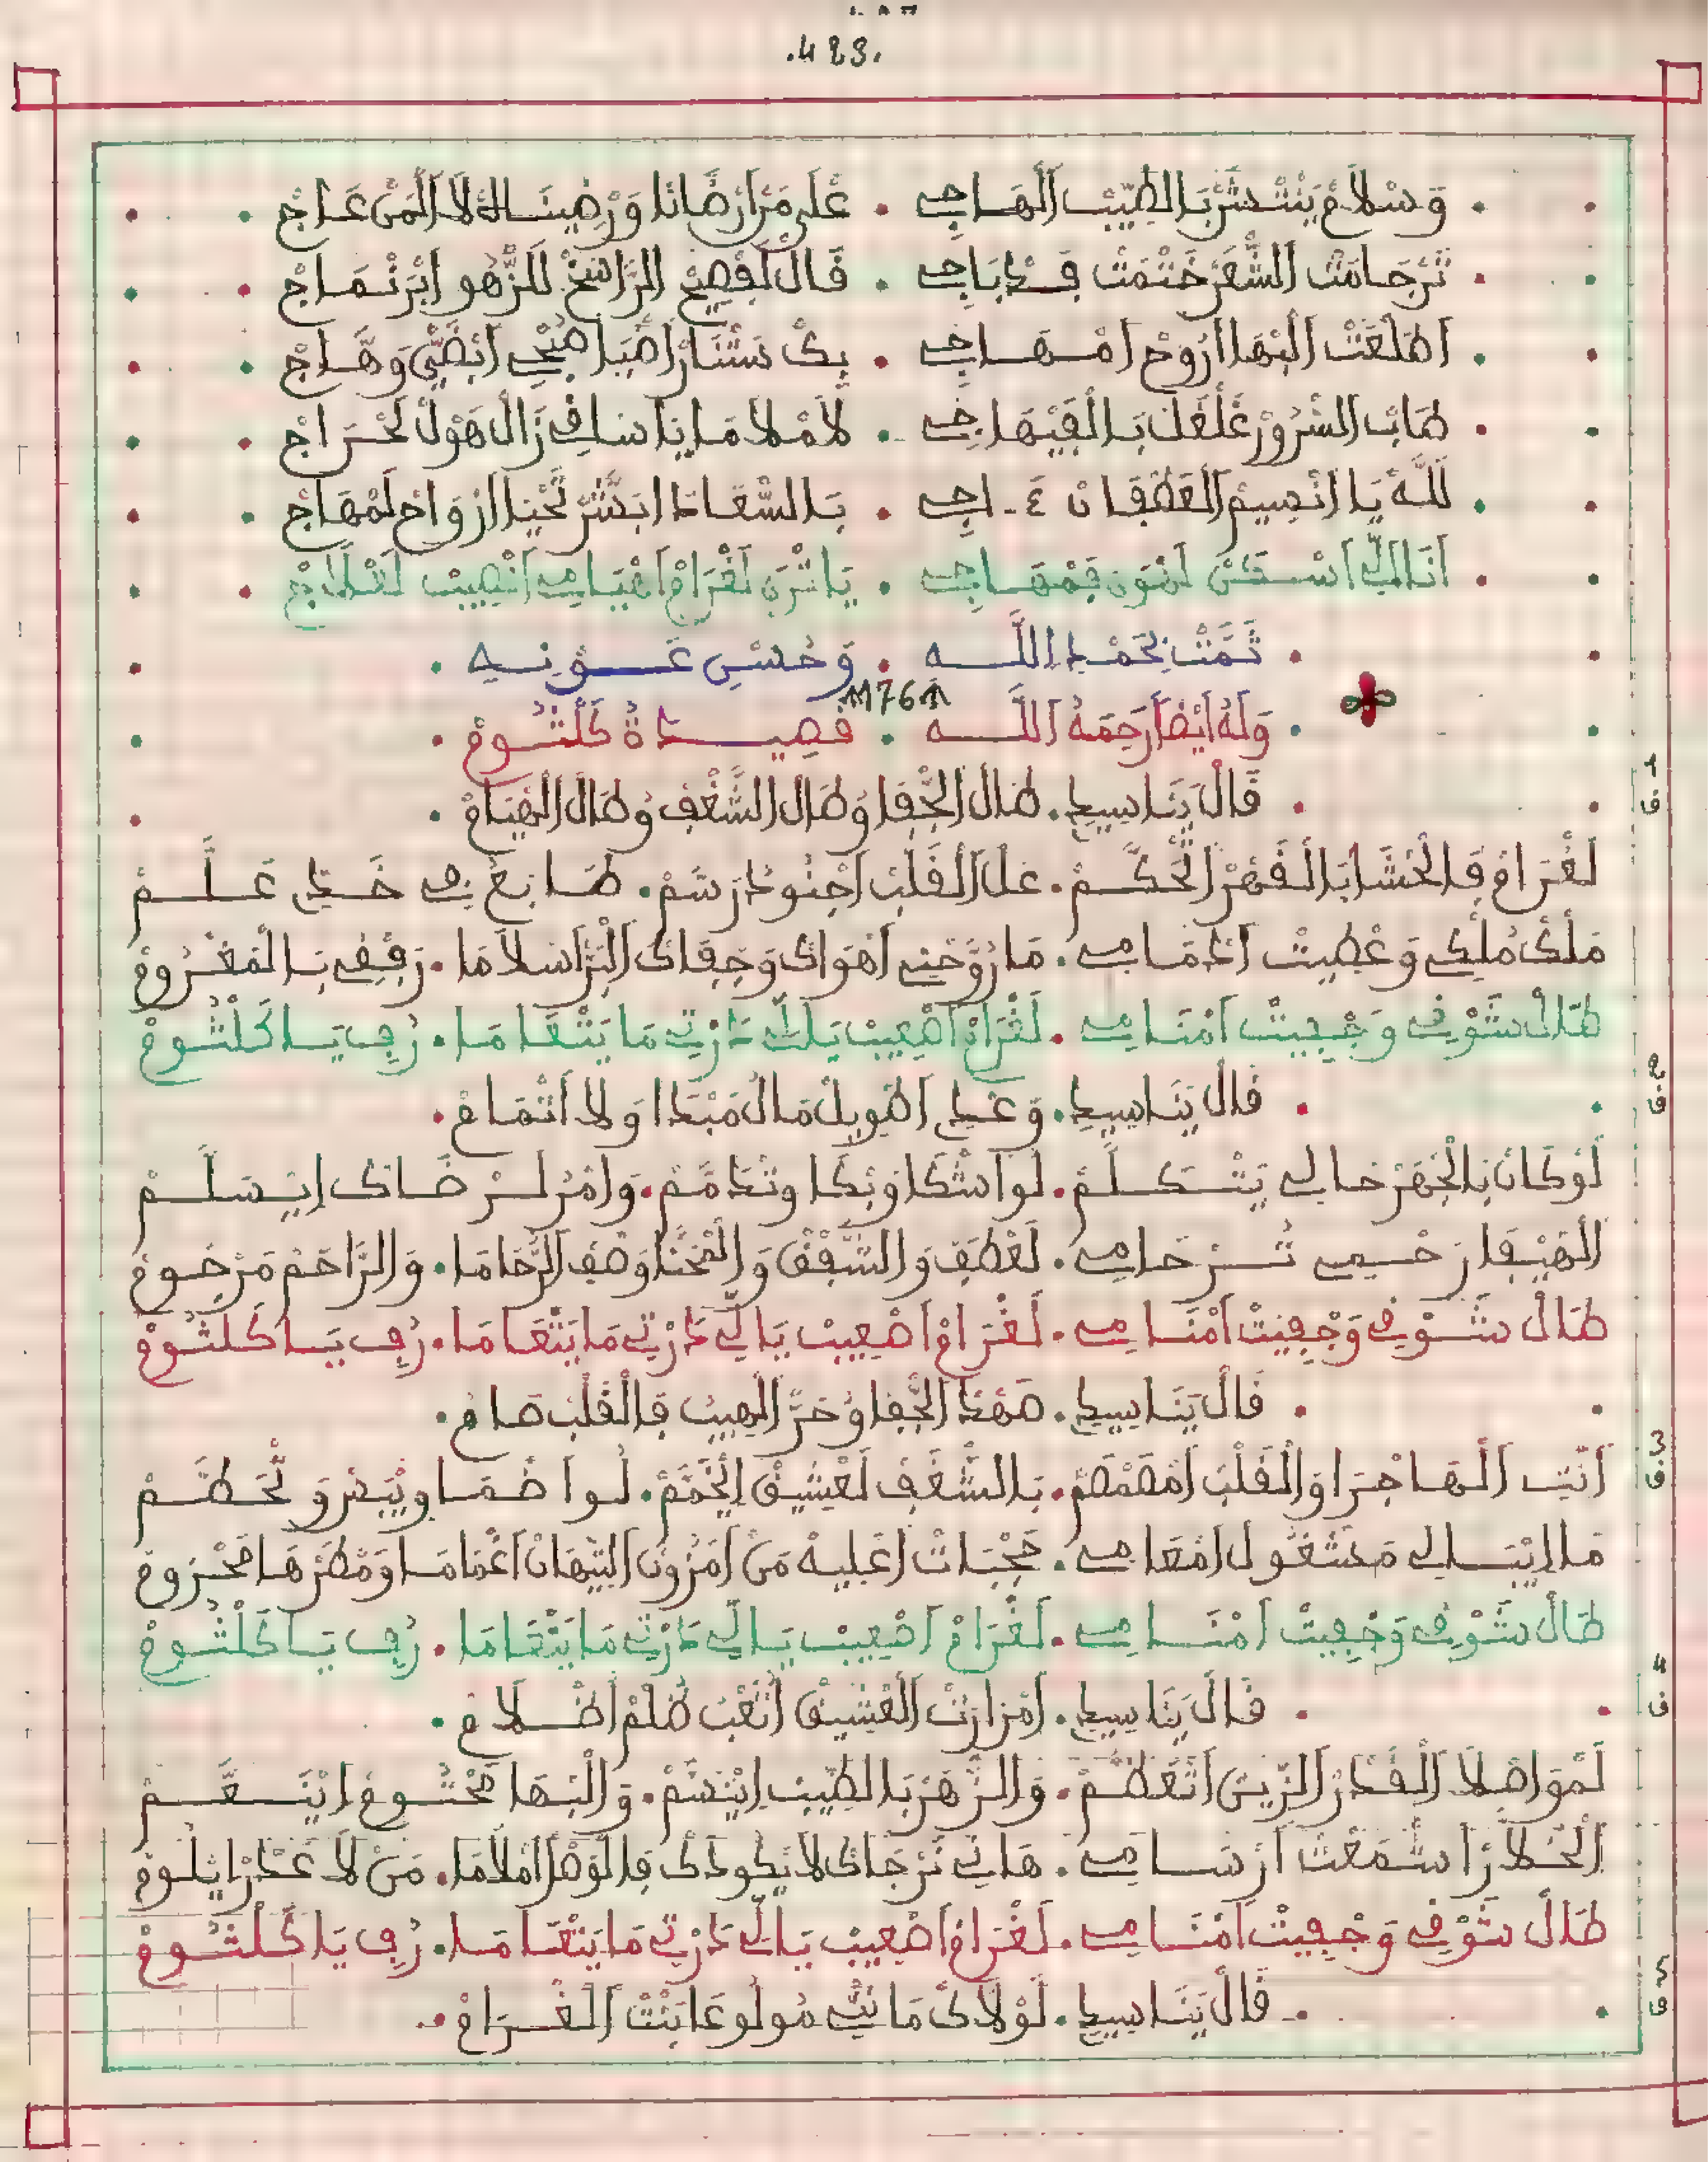 .423.
وَسْلَامْ يَنْتْشَرْ بَالطِّيبْ الْهَاجِي . عْلَى مَرْ ارْضَانَا وَرْضِينَا لَا الْمَنْ عَاجْ
تَرْجَامَتْ الشّْعَرْ خَتْمَتْ فَدْبَاجِي . قَالْ لَفْصِيحْ الرَّاسَخْ لَلزّْهُو ابْرَنْمَاجْ
اطَلْعَتْ الْبْهَا ارُوحْ امْهَاجِي . بِكْ نَسْتْنَارْ اضْيَا صُبْحِي ابْضَيّْ وَهَّاجْ
طَابْ السّْرُورْ غَلْغَلْ بَالْفَيْهَاجِي . لَامْلَامَا يَنَاسَافِي زَالْ هَوْلْ لَحْرَاجْ
لَلَّهْ يَا انْسِيمْ الْعَطْفَانْ عَـاجِي . بَالسّْعَادَا ابَشَّرْ تَحْيَا ارْوَاحْ لَمْهَاجْ
أَنَا الِّي اسْكَنْ لَهْوَى فَمْهَاجِي . يَا تْرَى لَغْرَامْ اهْيَامِي انْصِيبْ لَعْلَاجْ
تَمَّتْ بِحَمْدِ اللَّهِ . وَحُسْنِ عَوْنِهِ
1176
وَلَهُ أَيْضًا رَحِمَهُ اللَّه . قَصِيدَةُ كَلْثُومْ
1 ف
قَالْ يَنَاسِيدِي . طَالْ الْجّْفَا وُطَالْ الشّْغَفْ وُطَالْ الْهْيَامْ
لَغْرَامْ فَالْحْشَا بَالْقَهْرْ تْحَكَّمْ . عْلَى الْقَلْبْ اجْنُودُ رْسَمْ . طَابَعُ فِي خَدِّي عَلَّمْ
مَلْكْ مُلْكِي وَعْطِيتْ ادْمَامِي . مَا رَوَّحْنِي اهْوَاكْ وَجْفَاكْ الْبْرَا سْلَامَا . رَفْقِي بَالْمَغْرُومْ
طَالْ شَوْقِي وَجْفِيتْ امْنَامِي . لَغْرَامْ اصْعِيبْ يَالِّي دَارْتِي مَا يَتْعَامَا . رُفِي يَا كَلْثُومْ
2 ف
قَالْ يَنَاسِيدِي . وَعْدِي اطْوِيلْ مَالُ مَبْدَا وَلَا اتْمَامْ
لَوْ كَانْ بَالْجْهَرْ حَالِي يَتْكَلَّمْ . لَوْ اشْكَا وُبْكَا وتْدَمَّمْ . وَامُرْ لَرْضَاكْ ايْسَلَّمْ
الْهِيفَا رَحْمِي تُرْحَامِي . لَعْطَفْ وَالشّْفْقْ وَالْمْحَنَّا وَصْفْ الرّْحَامَا . وَالرَّاحَمْ مَرْحُومْ
طَالْ شَوْقِي وَجْفِيتْ امْنَامِي . لَغْرَامْ اصْعِيبْ يَالِّي دَارْتِي مَا يَتْعَامَا . رُفِي يَا كَلْثُومْ
قَالْ يَنَاسِيدِي . صَهْدْ الْجّْفَا وُحَرّْ الْهِيبُ فَالْقَلْبْ صَامْ
3 ف
أَنْتِ الْهَاجْرَا وَالْقَلْبْ امْصَمْصَمْ . بَالشّْغَفْ لَعْشِيقْ ايْخَمَّمْ . لُو اضْمَا وِيْبَصْرُو تَّحْطَمْ
مَا ايْبَالِي مَشْغُولْ امْعَامِي . حَجْبَاتْ اعْلِيهْ مَنْ امْزُونْ التِّيهَانْ اغْمَامَا وَمْطَرْهَا مَحْزُومْ
طَالْ شَوْقِي وَجْفِيتْ امْنَامِي . لَغْرَامْ اصْعِيبْ يَالِّي دَارْتِي مَا يَتْعَامَا . رُفِي يَا كَلْثُومْ
4 ف
قَالْ يَنَاسِيدِي . امْزَارْتْ الْعْشِيقْ اتْعَبْ ظُلْمْ اظْلَامْ
لَمْوَاصْلَا الْقَدْرْ الزِّينْ اتْعَظَّمْ . وَالزّْهَرْ بَالطِّيبْ ايْنَسَّمْ . وَالْبْهَا مَخْتُومْ ايْنَعَّمْ
الْخْلَا رَا سَمْعَتْ ارْسَامِي . هَانِي نَرْجَاكْ لَا يْكُودَكْ فَالْوَصْلْ املَامَا . مَنْ لَا عْدَرْ ايْلُومْ
طَالْ شَوْقِي وَجْفِيتْ امْنَامِي . لَغْرَامْ اصْعِيبْ يَالِّي دَارْتِي مَا يَتْعَامَا . رُفِي يَا كَلْثُومْ
5 ف
قَالْ يَنَاسِيدِي . لَوْلَاكْ مَا نْبِي سُولُو عَابَنْتْ الْغْرَامْ